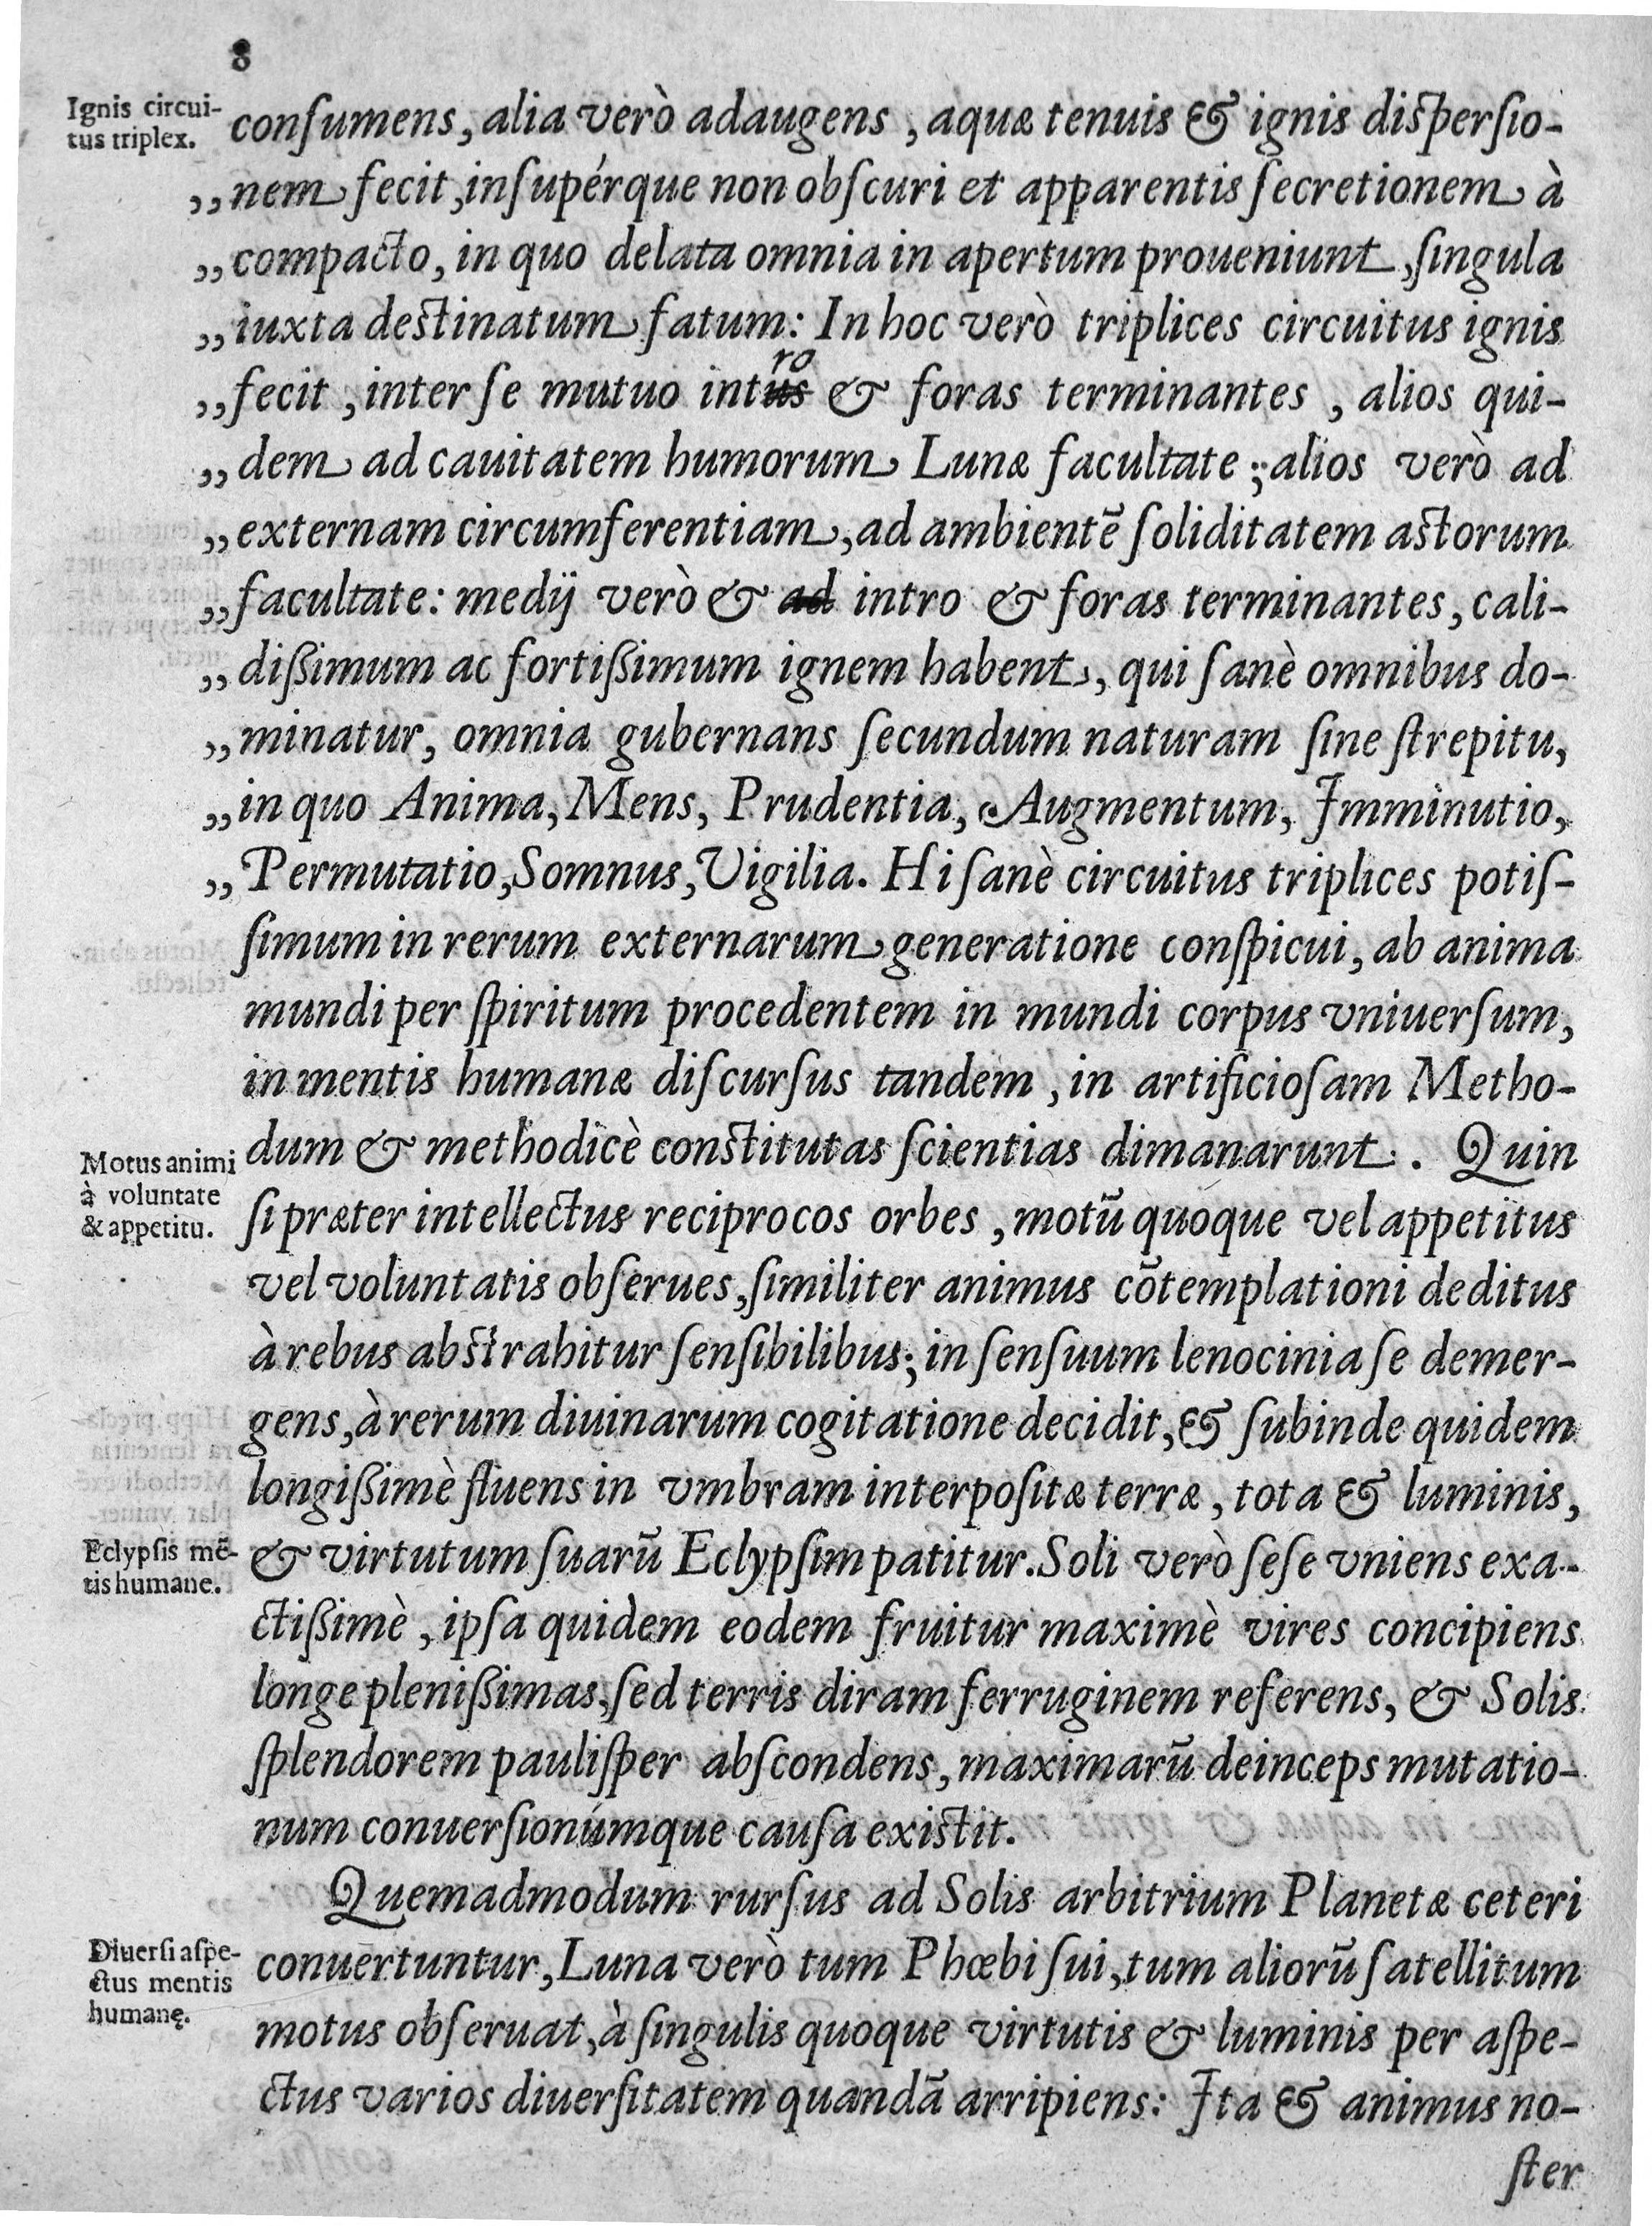 8
Ignis circui-
tus triplex.
conſumens, alia verò adaugens, aquæ tenuis & ignis diſperſio-
„ nem fecit, inſupérque non obſcuri et apparentis ſecretionem à
„ compacto, in quo delata omnia in apertum proueniunt, ſingula
„ iuxta deſtinatum fatum: In hoc verò triplices circuitus ignis
ro
„ fecit, inter ſe mutuo intus & foras terminantes, alios qui-
„ dem ad cauitatem humorum Lunæ facultate; alios verò ad
„ externam circumferentiam, ad ambientē ſoliditatem aſtorum
„ facultate: medij verò & ad intro & foras terminantes, cali-
„ dißimum ac fortißimum ignem habent, qui ſanè omnibus do-
„ minatur, omnia gubernans ſecundum naturam ſine ſtrepitu,
„ in quo Anima, Mens, Prudentia, Augmentum, Imminutio,
„ Permutatio, Somnus, Vigilia. Hi ſanè circuitus triplices potiſ-
ſimum in rerum externarum generatione conſpicui, ab anima
mundi per ſpiritum procedentem in mundi corpus vniuerſum,
in mentis humanæ diſcurſus tandem, in artificioſam Metho-
dum & methodicè conſtitutas ſcientias dimanarunt. Quin
Motus animi
à voluntate
& appetitu.
ſi præter intellectus reciprocos orbes, motū quoque vel appetitus
vel voluntatis obſerues, ſimiliter animus cōtemplationi deditus
à rebus abſtrahitur ſenſibilibus; in ſenſuum lenocinia ſe demer-
gens, à rerum diuinarum cogitatione decidit, & ſubinde quidem
longißimè fluens in vmbram interpoſitæ terræ, tota & luminis,
Eclypſis mē-
tis humane.
& virtutum ſuarū Eclypſim patitur. Soli verò ſeſe vniens exa-
ctißimè, ipſa quidem eodem fruitur maximè vires concipiens
longe plenißimas, ſed terris diram ferruginem referens, & Solis
ſplendorem pauliſper abſcondens, maximarū deinceps mutatio-
num conuerſionúmque cauſa exiſtit.
Quemadmodum rurſus ad Solis arbitrium Planetæ ceteri
Diuerſi aſpe-
ctus mentis
humanę.
conuertuntur, Luna verò tum Phœbi ſui, tum aliorū ſatellitum
motus obſeruat, à ſingulis quoque virtutis & luminis per aſpe-
ctus varios diuerſitatem quandā arripiens: Ita & animus no-
ſter